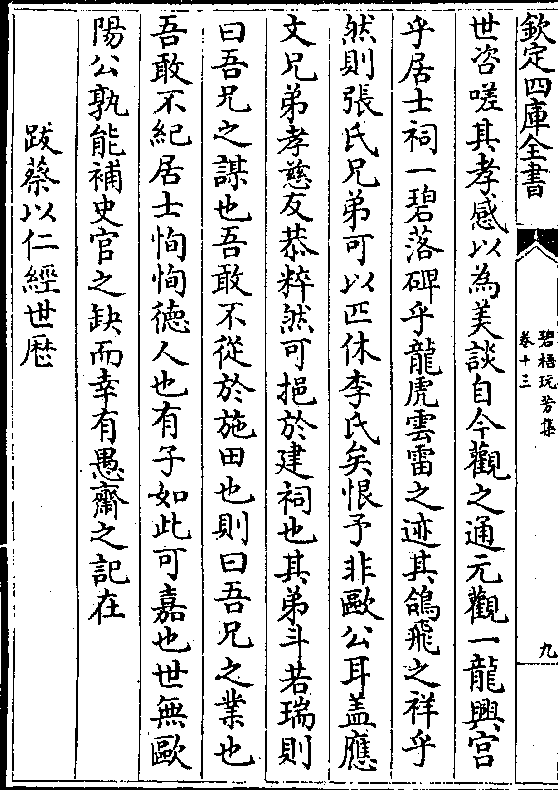 欽定四庫全書
碧梧玩芳集
卷十三
九
世咨嗟其孝感以為美談自今觀之通元觀一龍興宮
乎居士祠一碧落碑乎龍虎雲雷之迹其鴿飛之祥乎
然則張氏兄弟可以匹休李氏矣恨予非歐公耳盖應
文兄弟孝慈友恭粹然可挹於建祠也其弟斗若瑞則
曰吾兄之謀也吾敢不從於施田也則曰吾兄之業也
吾敢不紀居士恂恂徳人也有子如此可嘉也世無歐
陽公孰能補史官之缺而幸有愚齋之記在
跋蔡以仁經世歴